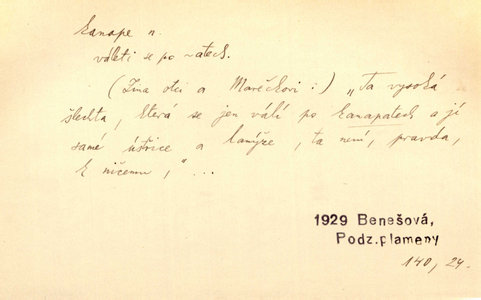 kanape n.
váleti se po ~atech.
(Ima otci o Marečkovi:) „Ta vysoká
šlechta, která se jen válí po kanapatech a jí
samé ústřice a lanýže, ta není, pravda,
k ničemu,“ ...
1929 Benešová,
Podz.plameny
140, 24.